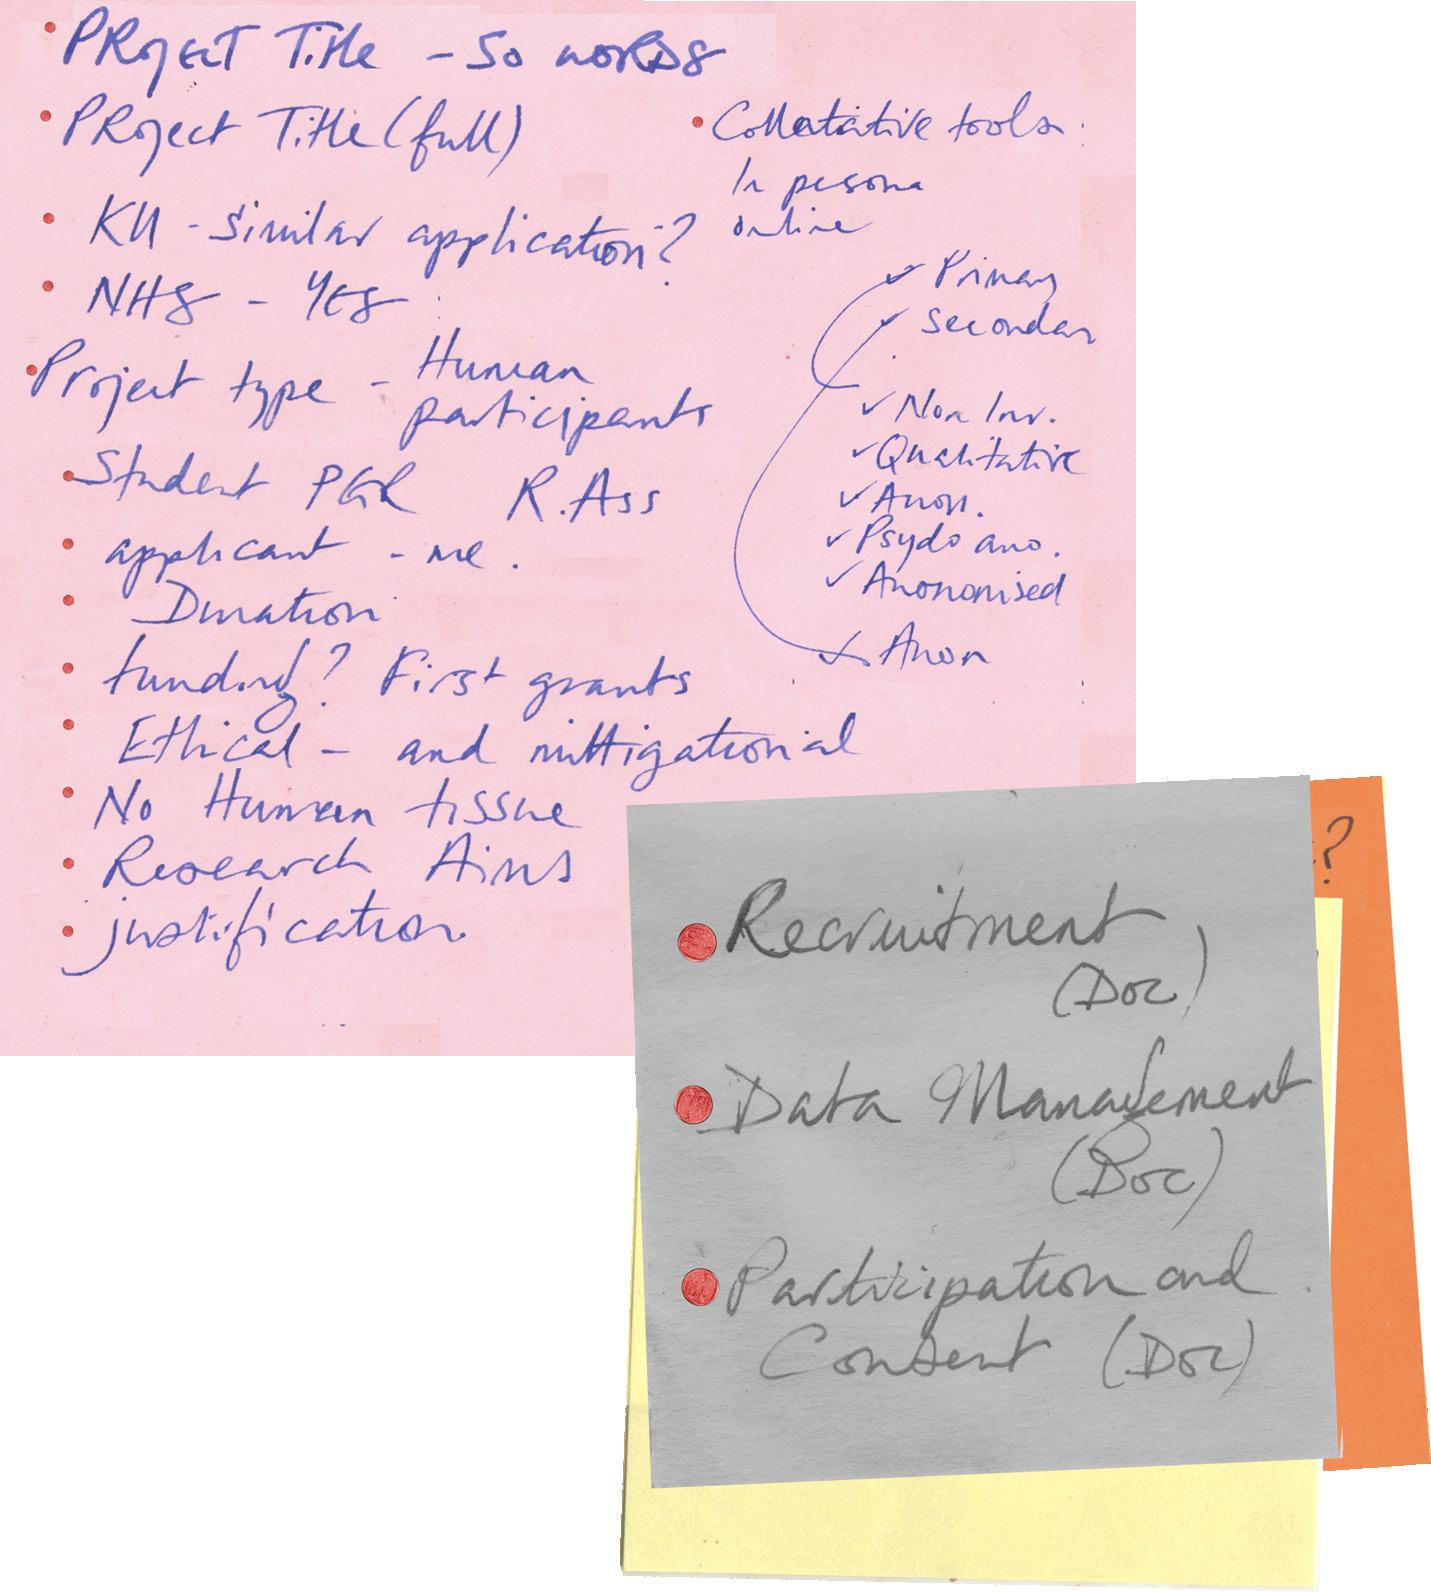 PROJECT Title - 50 WORDS
PROject Title (full)
KU - Similar application?
NHS - YES
Project type - Human
participants
Student PGR R.Ass
applicant - me.
Duration
funding? First grants
Ethical - and mittigational
No Human tissue
Research Aims
justification
tools:
In persona
online
Primary
Secondar
✓ Non Inv.
✓ Qualitative
✓ Anon.
✓ Psydo ano.
✓ Anononised
Anon
?
Recruitment
(Doc)
Data Management
(Doc)
Participation and
Consent (Doc)